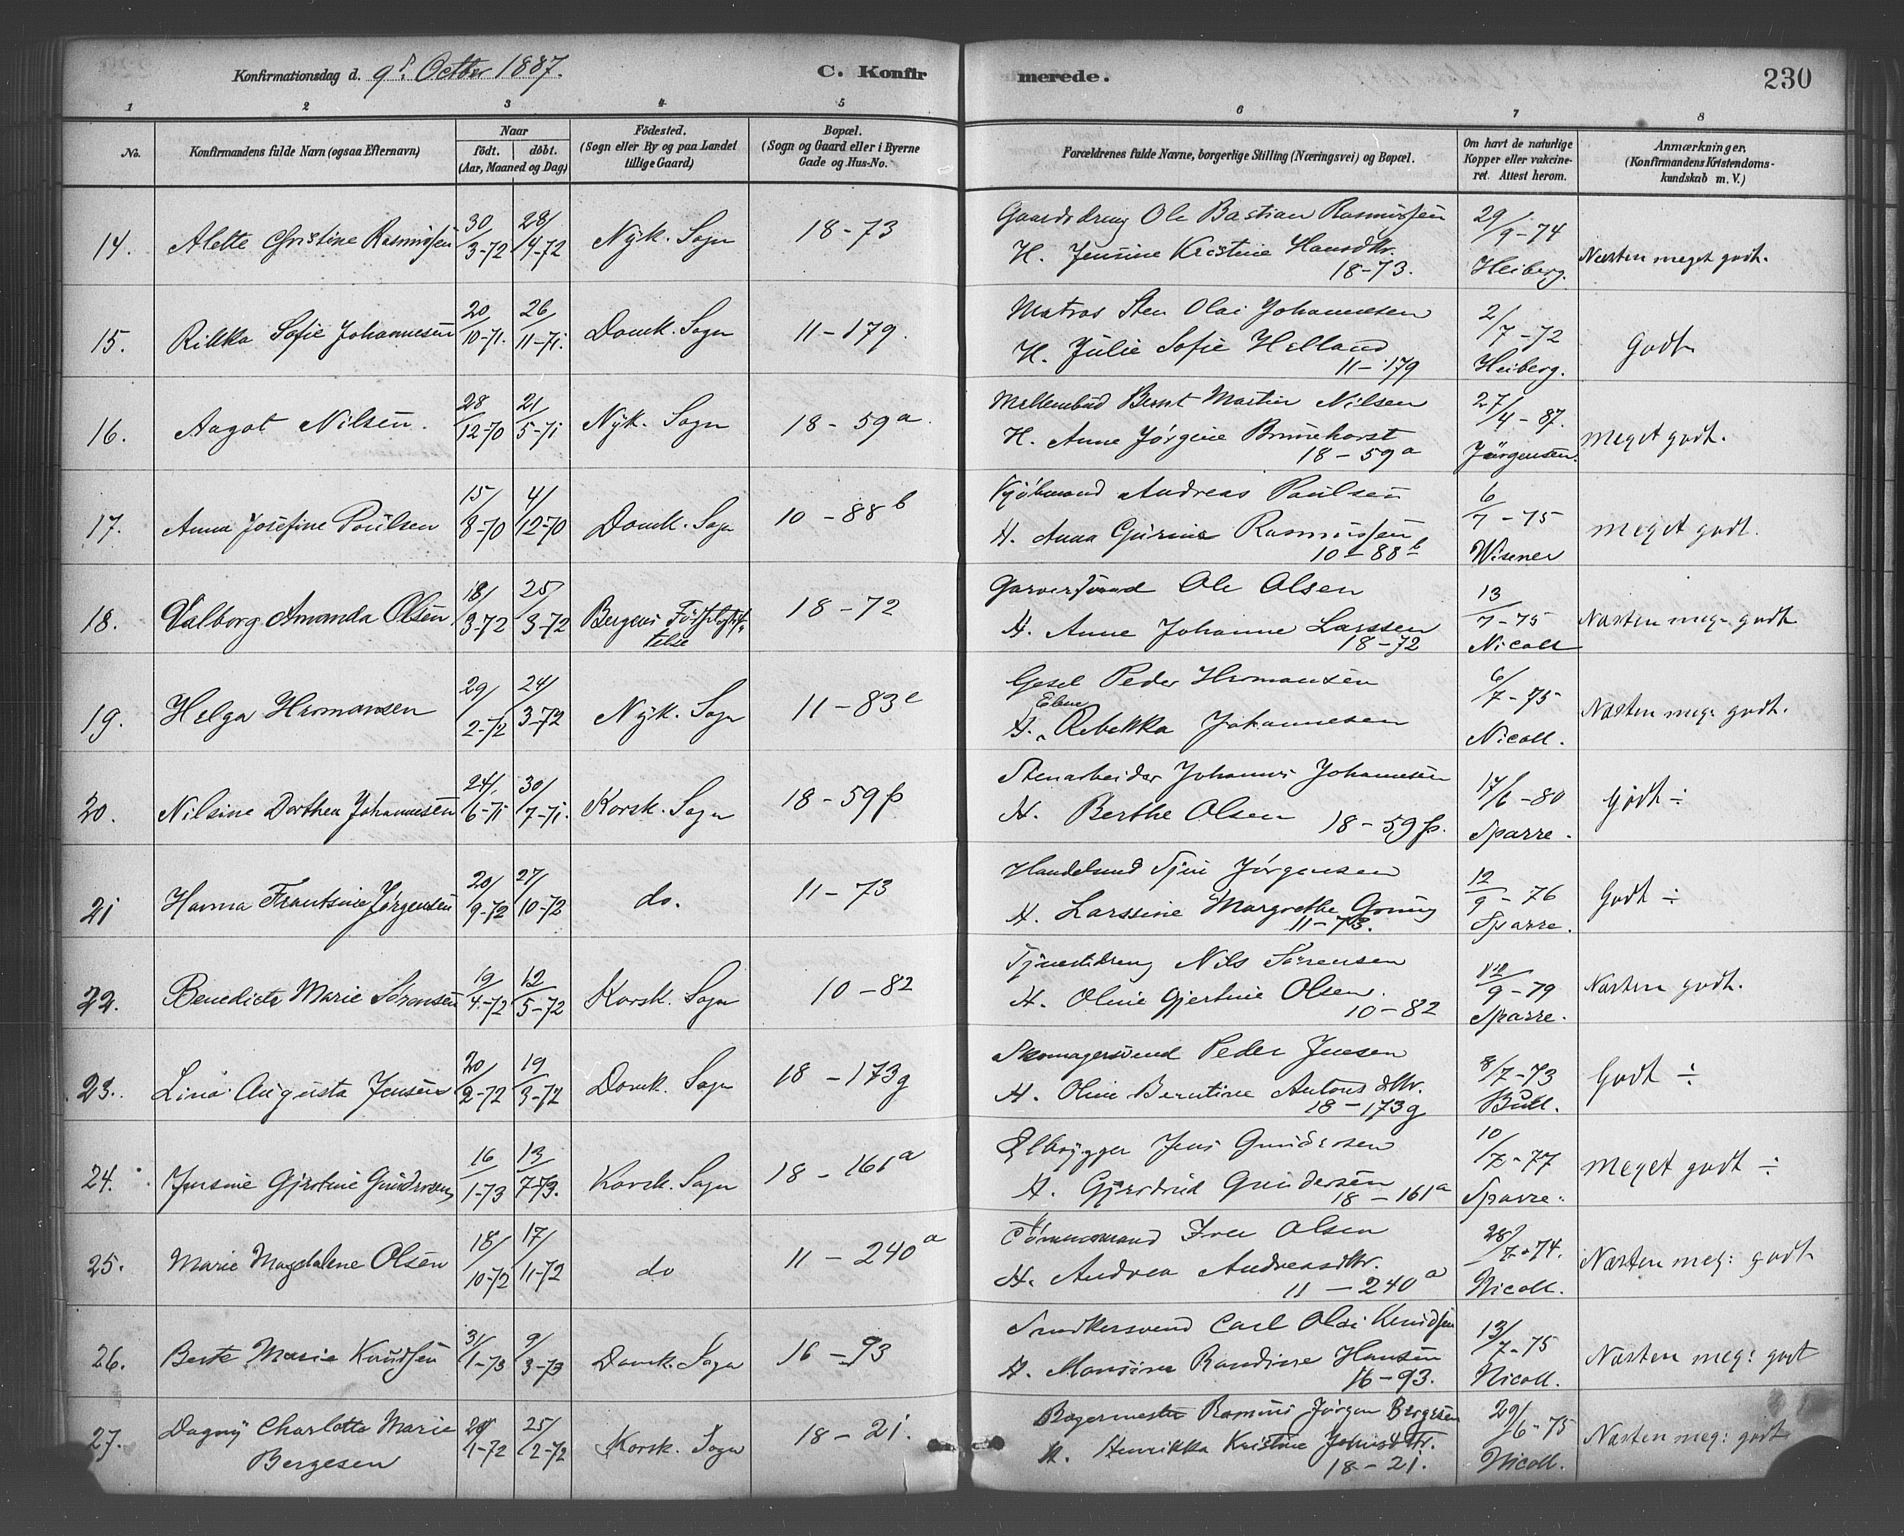 Konfirmationsdag d. 9d. Octber 1887. C. Konfirmerede. 230
1 2 3 4 5 6 7 8
No. Konfirmandens fulde Navn (ogsaa Efternavn) Naar födt. döbt. (Aar, Maaned og Dag) Födested. (Sogn eller By og paa Landet tillige Gaard) Bopæl. (Sogn og Gaard eller i Byerne Gade og Hus-No. Forældrenes fulde Navne, borgerlige Stilling (Næringsvei) og Bopæl. Om havt de naturlige Kopper eller vakcineret. Attest herom. Anmærkninger. (Konfirmandens Kristendomskundskab m. V.)
14. Alette Christine Rasmussen 30/3-72 28/4-72 Nyk. Sogn 18-73 Gaardsdreng Ole Bastian Rasmussen 29/9-74 Næsten meget godt.
H. Jensine Kristine Hansdtr. Heiberg.
18-73.
15. Rikka Sofie Johannesen 20/10-71. 26/11-71. Domk. Sogn 11-179. Matros Sten Olai Johannesen 2/7-72 Godt
H. Julie Sofie Helland Heiberg.
11-179
16. Aagot Nilsen. 28/12-70 21/5-71 Nyk. Sogn 18-59a. Bernt Martin Nilsen 27/4-87. meget godt.
H. Anne Jørgine Brunehorst Jörgensen.
18-59a
17. Anna Josefine Poulsen 15/8-70 4/12-70 Domk. Sogn 10-88b Kjøbmand Andreas Poulsen 6/7-75 meget godt.
H. Anna Gurine Rasmussen Wisener
10-88b
18. Valborg Amanda Olsen 18/3-72 25/3-72 Bergens Födselsstiftelse 18-72 Garversvend Ole Olsen 13/7-75 Næsten meg. godt
H. Anne Johanne Larssen Nicoll
18-72
19. Helga Hermansen 29/2-72 24/3-72 Nyk. Sogn 11-83c Gesel Peder Hermansen 6/7-75 Næsten meg: godt.
Eline
H. Rebekka Johannesen Nicoll.
20. Nilsine Dorthea Johannesen 24/6-71 30/7-71. Korsk. Sogn 18-59p Stenarbeider Johannes Johannesen 17/6-80 Godt ÷
H. Berthe Olsen 18-59p. Sparre.
21 Hanna Frantsine Jørgensen 20/9-72 27/10-72 do. 11-73 Handelsmd Jørgensen 12/9-76 Godt ÷
H. Larssine Margrethe Sparre.
11-73.
22. Benedicte Marie Sörensen 19/4-72 12/5-72 Korsk. Sogn 10-82 Tjenestdreng Nils Sørensen 12/9-79 Næsten godt.
H. Oline Gjertine Olsen. Sparre.
10-82
23. Lina Augusta Jensen 20/2-72 19/3-72 Domk. Sogn 18-173g Skomagersvend Peder Jensen 8/7-73 Godt ÷
H. Oline Berntine Antonsdtr. Bull.
18-173g
24. Jensine Gjertine Gundersen 16/1-73 13/7-73. Korsk. Sogn 18-161a Ølbrygger Jens Gundersen 10/7-77 meget godt ÷
H. Gjerdrud Gundersen Sparre.
18-161a
25. Marie Magdalene Olsen 18/10-72 17/11-72 do 11-240a Tömmermand Iver Olsen 28/7-74. Næsten meg: godt
H. Andrea Andreasdtr. Nicoll.
11-240a
26. Berte Marie Knudsen 31/1-73 9/3-73 Domk. Sogn 16-93 Snedkersvend Carl Olai Knudsen 13/7-75 Næsten meg: godt
H. Monsine Randine Hansen Nicoll.
16-93.
27. Dagny Charlotte Marie Bergesen 20/1-72 25/2-72 Korsk. Sogn 18-21. Bagermester Rasmus Jørgen Bergesen 29/6-75 Næsten meg: godt
H. Henrikka Kristine Johnsdtr. Nicoll.
18-21.